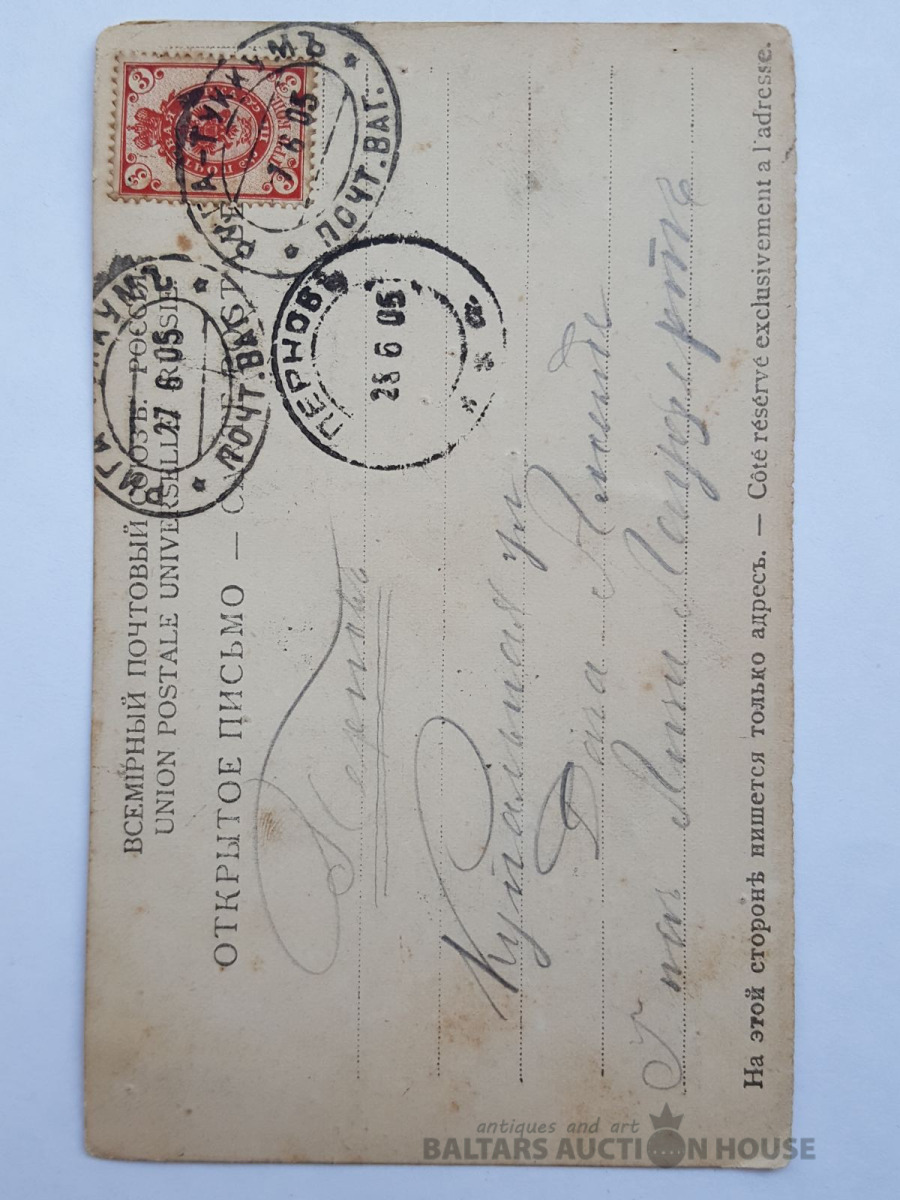 ВСЕМІРНЫЙ ПОЧТОВЫЙ СОЮЗЪ. РОССІЯ
UNION POSTALE UNIVERSELLE. RUSSIE
ОТКРЫТОЕ ПИСЬМО — CARTE POSTALE
3 3
3 3
РИГА-ТУККУМЪ
7 6 05
ПОЧТ. ВАГ.
РИГА ТУККУМЪ
27 6 05
ПОЧТ. ВАГ.
ПЕРНОВЪ
28 6 05
Перновъ
Купальная ул
Дача
На этой сторонѣ пишется только адресъ. — Côté résérvé exclusivement a l'adresse.
antiques and art
BALTARS AUCTION HOUSE